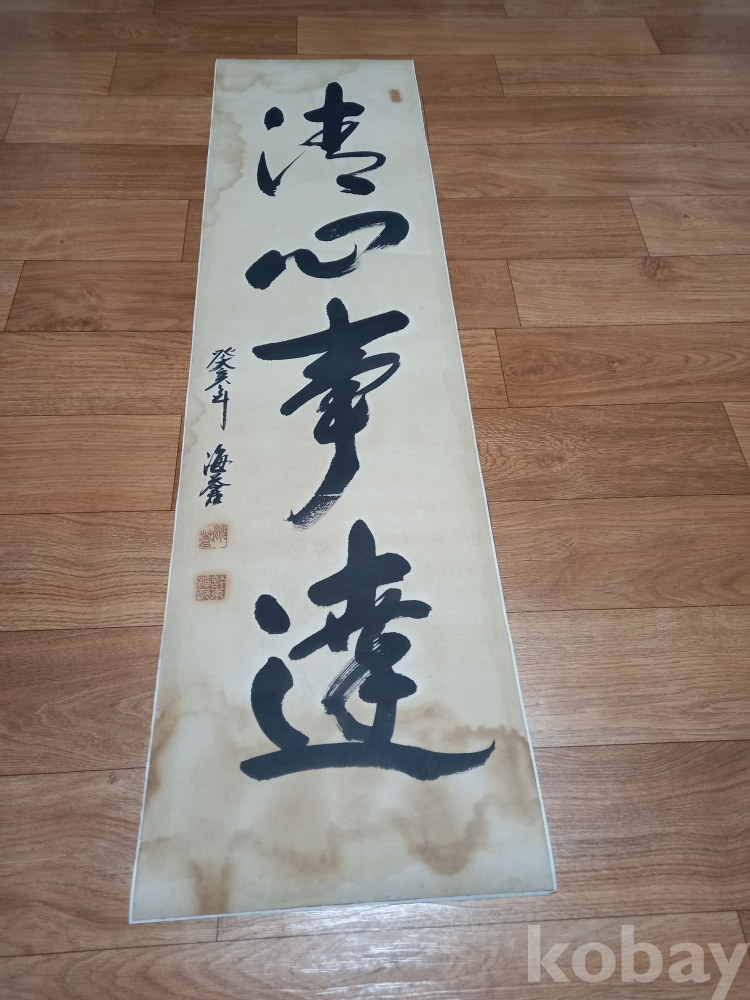 清心事達
癸亥年 海蒼
kobay